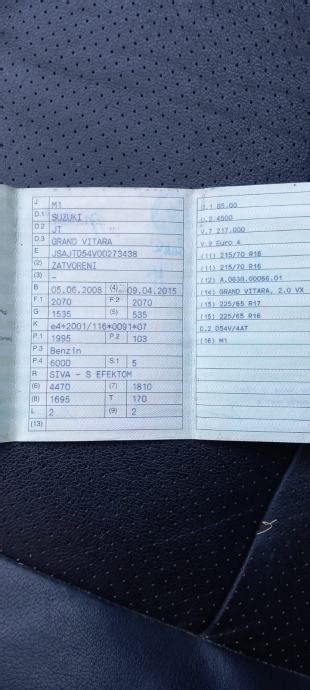 J M1
D.1 SUZUKI
D.2 JT
D.3 GRAND VITARA
E JSAJTD54V00273438
(2) ZATVORENI
(3) -
B 05.06.2008 (4) 09.04.2015
F.1 2070 F.2 2070
G 1535 (5) 535
K e4*2001/116*0091*07
P.1 1995 P.2 103
P.3 Benzin
P.4 6000 S.1 5
R SIVA - S EFEKTOM
(6) 4470 (7) 1810
(8) 1695 T 170
L 2 (9) 2
(13)
U.1 85.00
U.2 4500
V.7 217.000
V.9 Euro 4
(11) 215/70 R16
(11) 215/70 R16
(12) A.0638.00066.01
(14) GRAND VITARA, 2.0 VX
(15) 225/65 R17
(15) 225/65 R16
D.2 D54V/4AT
(16) M1